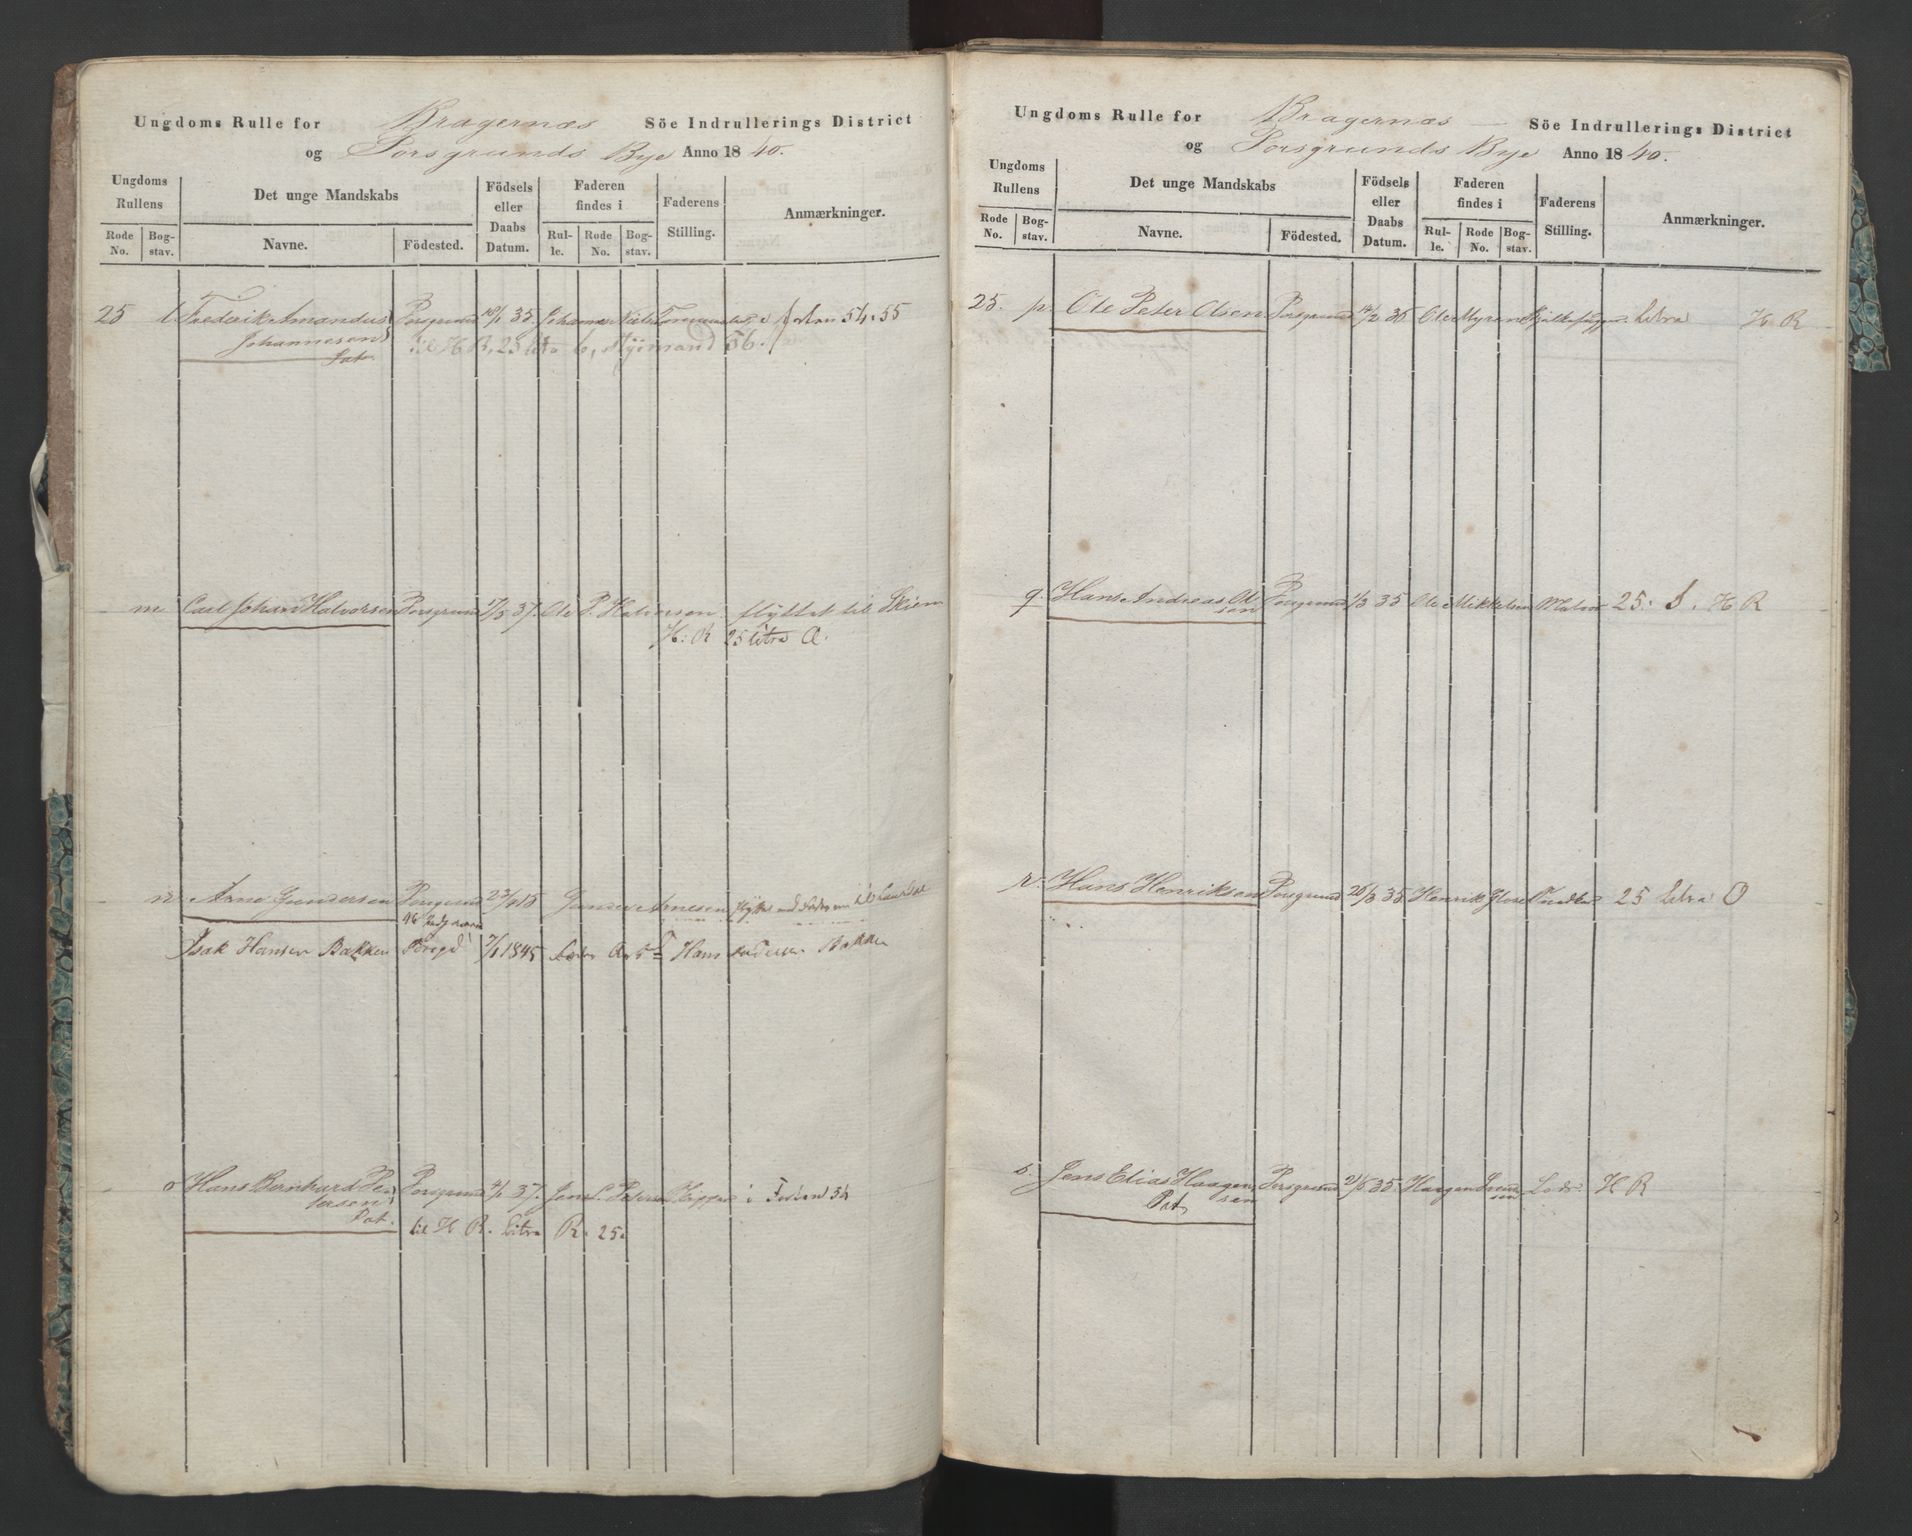 Ungdoms Rulle for Bragernæs Söe Indrullerings District
og Porsgrunds Bye Anno 1840.
Ungdoms Rullens
Det unge Mandskabs
Födsels eller Daabs Datum.
Faderen findes i
Faderens Stilling.
Anmærkninger.
Rode No.
Bog-stav.
Navne.
Födested.
Rul-le.
Rode No.
Bog-stav.
25 l Frederik Amandus Porsgrund 18/1 35. Johannes Niels i 54. 55
Johannesen
Pat.
til H R. 25 litra 56.
m Carl Johan Halvorsen Porsgrund 17/5 37. Ole P. Halvorsen flyttet til Skien
H: R 25 litra Q.
n. Arne Gundersen Porsgrund Gunder Arnesen
Isak Hansen Bakken Porsgd 7/1 1845 Hans Bakken
o Hans Bernhard Pe- Porsgrund 4/1 37. Jens Skipper i 54
tersen
Pat.
til H R. litra R. 25.
Ungdoms Rulle for Bragernæs Söe Indrullerings District
og Porsgrunds Bye Anno 1840.
Ungdoms Rullens
Det unge Mandskabs
Födsels eller Daabs Datum.
Faderen findes i
Faderens Stilling.
Anmærkninger.
Rode No.
Bog-stav.
Navne.
Födested.
Rul-le.
Rode No.
Bog-stav.
25. p. Ole Peter Olsen Porsgrund 14/2 35 Ole Myrene litra H R
q. Hans Andreas Ol- Porsgrund 1/3 35 Ole Mikkelsen Matros 25. S. H R
sen
r. Hans Henriksen Porsgrund 26/3 35 Henrik 25 litra O
s. Jens Elias Haagen- Porsgrund 21/5 35. Haagen Lods. H R
sen
Pat.